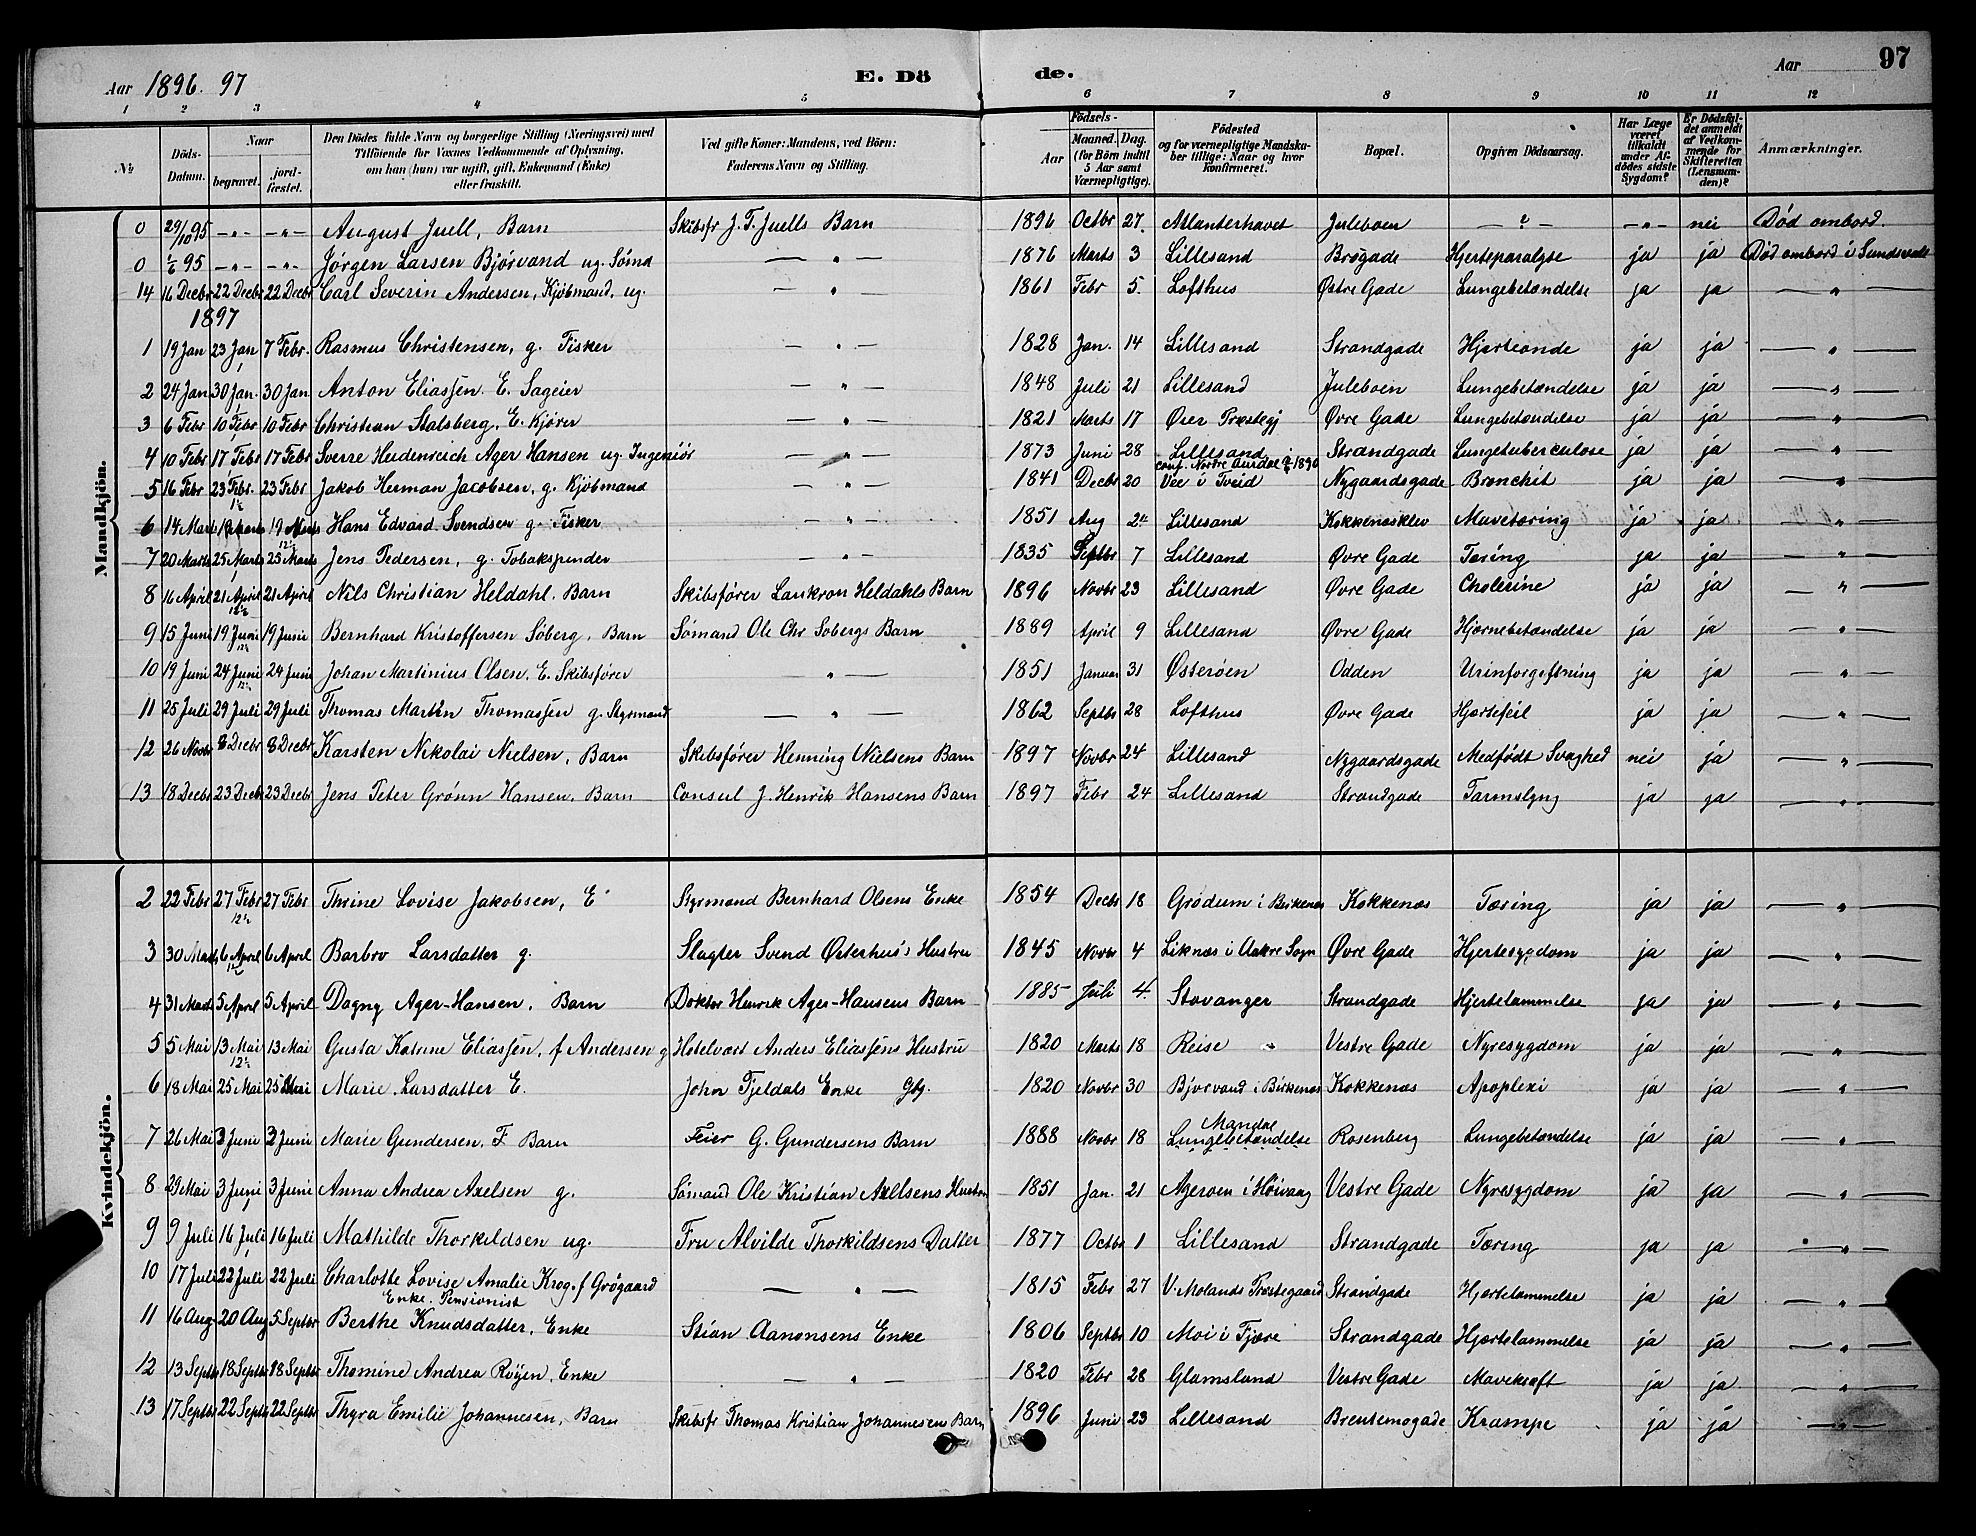 Aar 1896. 97 E. Dö de. Aar 97
1 2 3 4 5 6 7 8 9 10 11 12
№ Döds-Datum. Naar begravet. jord-fæstet. Den Dödes fulde Navn og borgerlige Stilling (Næringsvei) med Tilföiende for Voxnes Vedkommende af Oplysning, om han (hun) var ugift, gift, Enkemand (Enke) eller fraskilt. Ved gifte Koner: Mandens, ved Börn: Faderens Navn og Stilling. Födsels- Aar Maaned. Dag. (for Börn indtil 5 Aar samt Værnepligtige). Födested og for værnepligtige Mandskaber tillige: Naar og hvor konfirmeret. Bopæl. Opgiven Dödsaarsag. Har Læge været tilkaldt under Afdödes sidste Sygdom? Er Dödsfaldet anmeldt af Vedkommende for Skifteretten (Lensmanden)? Anmærkninger.
Mandkjön.
0 29/10 95 -"- -"- August Juell, Barn Skibsfr J. T. Juells Barn 1896 Octbr 27. Atlanterhavet Juleboen -"- -"- nei Død ombord.
0 1/6 95 -"- -"- Jørgen Larsen Bjørvand ug. Sømd — " — 1876 Marts 3 Lillesand Brøgade Hjerteparalyse ja ja Død ombord i Sundsvall
14 16 Decbr 22 Decbr 22 Decbr Carl Severin Andersen, Kjøbmand, ug. — " — 1861 Febr 5. Lofthus Østre Gade Lungebetændelse ja ja — " —
1897
1 19 Jan 23 Jan 7 Febr. Rasmus Christensen, g. Fisker — " — 1828 Jan. 14 Lillesand Strandgade Hjerteonde ja ja — " —
2 24 Jan 30 Jan. 30 Jan Anton Eliassen. E. Sageier — " — 1848 Juli 21 Lillesand Juleboen Lungebetændelse ja ja — " —
3 6 Febr 10 Febr 10 Febr Christian Stalsberg, E. Kjører — " — 1821 Marts 17 Øier Præstegj Øvre Gade Lungebetændelse ja ja — " —
4 10 Febr 17 Febr 17 Febr Sverre Heidenreich Ager Hansen ug. Ingeniör — " — 1873 Juni 28 Lillesand Strandgade Lungetuberculose ja ja — " —
conf. Nordre Aurdal 1890
5 16 Febr 23 Febr. 23 Febr Jakob Herman Jacobsen, g. Kjøbmand — " — 1841 Decbr 20 Vee i Tveid Nygaardsgade Bronchit ja ja — " —
6 14 Marts 19 Marts 19 Marts Hans Edvard Svendsen g. Fisker — " — 1851 Aug 24 Lillesand Kokkenæsklev Mavetæring ja ja — " —
7 20 Marts 25 Marts 25 Marts Jens Pedersen, g. Tobakspinder — " — 1835 Septbr 7 Lillesand Øvre Gade Tæring ja ja — " —
8 16 April 21 April 21 April Nils Christian Heldahl. Barn Skibsfører Lankron Heldahls Barn 1896 Novbr 23 Lillesand Øvre Gade Cholerine ja ja — " —
9 15 Juni 19 Juni 19 Juni Bernhard Kristoffersen Søberg, Barn Sømand Ole Chr Sobergs Barn 1889 April 9 Lillesand Øvre Gade Hjernebetændelse ja ja — " —
10 19 Juni 24 Juni 24 Juni Johan Martinius Olsen. E. Skibsfører — " — 1851 Januar 31 Østerøen Odden Urinforgiftning ja ja — " —
11 25 Juli 29 Juli 29 Juli Thomas Martin Thomassen g. Styrmand — " — 1862 Septbr 28 Lofthus Øvre Gade Hjertefeil ja ja — " —
12 26 Novbr 8 Decbr 8 Decbr Karsten Nikolai Nielsen, Barn Skibsfører Henning Nielsens Barn 1897 Novbr 24 Lillesand Nygaardsgade Medfødt Svaghed nei ja — " —
13 18 Decbr 23 Decbr 23 Decbr Jens Peter Grönn Hansen, Barn Consul J. Henrik Hansens Barn 1897 Febr 24 Lillesand Strandgade Tarmslyng ja ja — " —
Kvindekjön.
2 22 Febr 27 Febr 27 Febr Thrine Lovise Jakobsen, E Styrmand Bernhard Olsens Enke 1854 Decbr 18 Grødum i Birkenæs Kokkenæs Tæring ja ja — " —
3 30 Marts 6 April 6 April Barbro Larsdatter g. Slagter Svend Østerhus's Hustru 1845 Novbr 4 Liknæs i Aakre Sogn Øvre Gade Hjertesygdom ja ja — " —
4 31 Marts 5 April 5 April Dagny Ager-Hansen, Barn Doktor Henrik Ager-Hansens Barn 1885 Juli 4. Stavanger Strandgade Hjertelammelse ja ja — " —
5 5 Mai 13 Mai 13 Mai Gusta Katrine Eliassen, f Andersen g Hotelvært Anders Eliassens Hustru 1820 Marts 18 Reise Vestre Gade Nyresygdom ja ja — " —
6 18 Mai 25 Mai 25 Mai Marie Larsdatter E. John Fjeldals Enke Gbg. 1820 Novbr 30 Bjorvand i Birkenæs Kokkenæs Apoplexi ja ja — " —
7 26 Mai 3 Juni 3 Juni Marie Gundersen, F Barn Feier G. Gundersens Barn 1888 Novbr 18 Mandal Lungebetændelse Rosenberg Lungebetændelse ja ja — " —
8 29 Mai 3 Juni 3 Juni Anna Andrea Axelsen g. Sømand Ole Kristian Axelsens Hustru 1851 Jan. 21 Ageroen i Høivaag Vestre Gade Nyresygdom ja ja — " —
9 9 Juli 16 Juli 16 Juli Mathilde Thorkildsen ug. Fru Alvilde Thorkildsens Datter 1877 Octbr 1 Lillesand Strandgade Tæring ja ja — " —
10 17 Juli 22 Juli 22 Juli Charlotte Lovise Amalie Krog. f Grøgaard — " — 1815 Febr 27 V. Molands Præstegaard Strandgade Hjertelammelse ja ja — " —
Enke. Pensionist
11 16 Aug 20 Aug 5 Septbr Berthe Knudsdatter, Enke Stian Aanonsens Enke 1806 Septbr 10 Moi i Fjære Strandgade Hjertelammelse ja ja — " —
12 13 Septbr 18 Septbr 18 Septbr Thomine Andrea Røyen, Enke — " — 1820 Febr 28 Glamsland Vestre Gade Mavekræft ja ja — " —
13 17 Septbr 22 Septbr 22 Septbr Thyra Emilie Johannesen, Barn Skibsfr Thomas Kristian Johannesens Barn 1896 Juni 23 Lillesand Brentemogade Krampe ja ja — " —